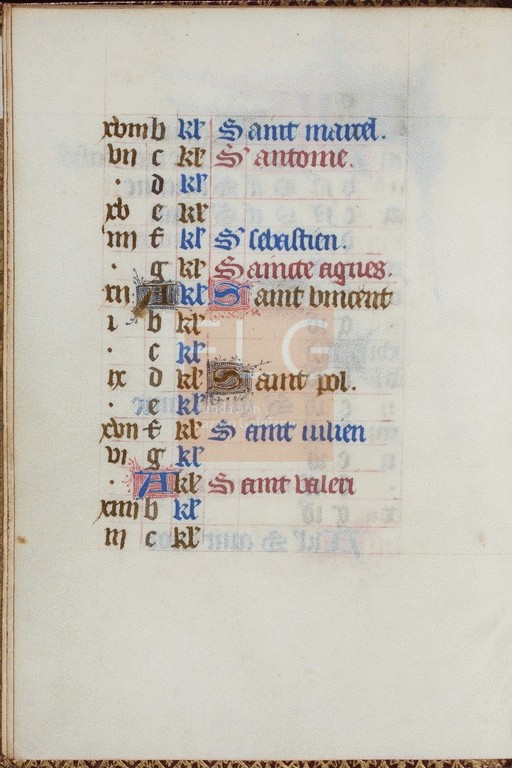 xviii b kl' Saint marcel.
vii c kl' S' antoine.
. d kl'
xv e kl'
iiii f kl' S' sebastien.
. g kl' Saincte agnes.
xii A kl' Saint vincent
i b kl'
. c kl'
ix d kl' Saint pol.
. e kl'
xvii f kl' Saint iulien
vi g kl'
. A kl' Saint valeri
xiiii b kl'
iii c kl'
FLG